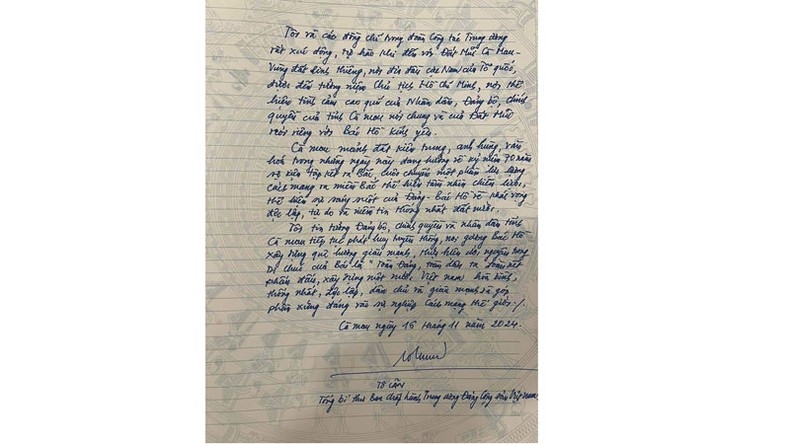 Tôi và các đồng chí trong đoàn Công tác Trung ương
rất xúc động, tự hào khi đến với Đất Mũi Cà Mau-
Vùng đất linh thiêng, nơi địa đầu cực Nam của Tổ quốc,
được đến tưởng niệm Chủ tịch Hồ Chí Minh, nơi thể
hiện tình cảm cao quý của Nhân dân, Đảng bộ, chính
quyền của tỉnh Cà mau nói chung và của Đất Mũi
nói riêng với Bác Hồ kính yêu.
Cà mau mảnh đất kiên trung, anh hùng, văn
hoá trong những ngày này đang hướng về kỷ niệm 70 năm
sự kiện Tập kết ra Bắc, cuộc chuyển một phần lực lượng
cách mạng ra miền Bắc thể hiện tầm nhìn chiến lược,
thể hiện sự sáng suốt của Đảng - Bác Hồ về khát vọng
độc lập, tự do và niềm tin thống nhất đất nước.
Tôi tin tưởng Đảng bộ, chính quyền và nhân dân tỉnh
Cà mau tiếp tục phát huy truyền thống, noi gương Bác Hồ
xây dựng quê hương giàu mạnh, thực hiện di nguyện trong
Di chúc của Bác là "Toàn Đảng, toàn dân ta đoàn kết
phấn đấu, xây dựng một nước Việt nam hoà bình,
thống nhất, độc lập, dân chủ và giàu mạnh và góp
phần xứng đáng vào sự nghiệp Cách mạng thế giới./.
Cà mau ngày 16 tháng 11 năm 2024.
Tô Lâm
Tổng bí thư Ban chấp hành Trung ương Đảng Cộng sản Việt nam